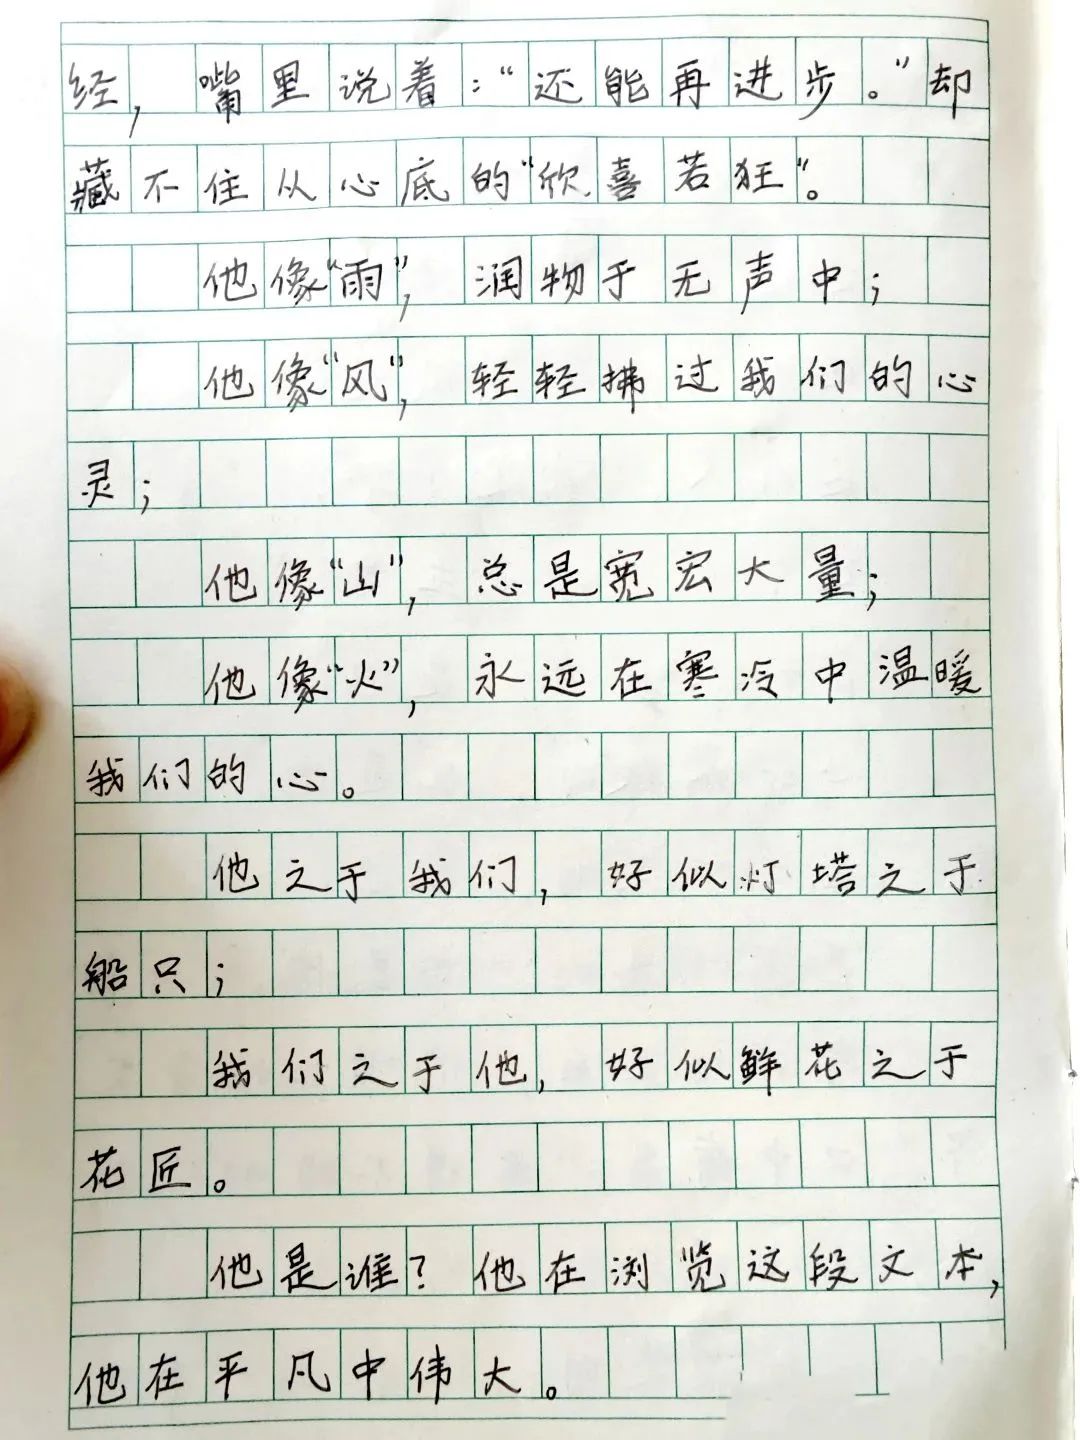 经，嘴里说着：“还能再进步。”却
藏不住从心底的“欣喜若狂”。
他像“雨”，润物于无声中；
他像“风”，轻轻拂过我们的心
灵；
他像“山”，总是宽宏大量；
他像“火”，永远在寒冷中温暖
我们的心。
他之于我们，好似灯塔之于
船只；
我们之于他，好似鲜花之于
花匠。
他是谁？他在浏览这段文本，
他在平凡中伟大。